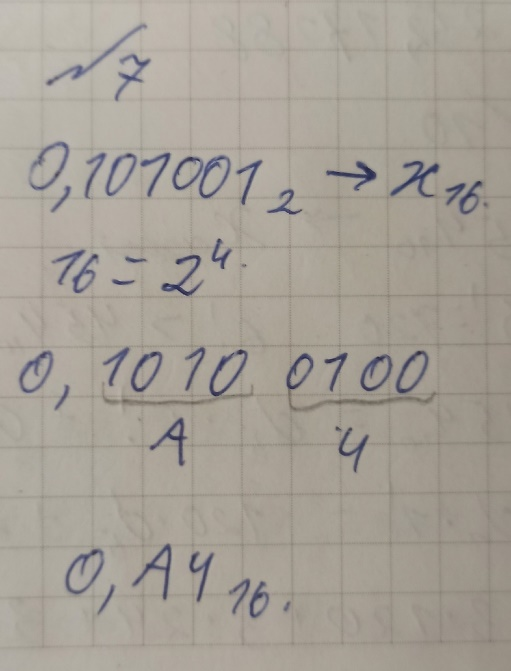 √7
0,101001₂ → x₁₆.
16 = 2⁴.
0, 1010 0100
A 4
0, A4₁₆.